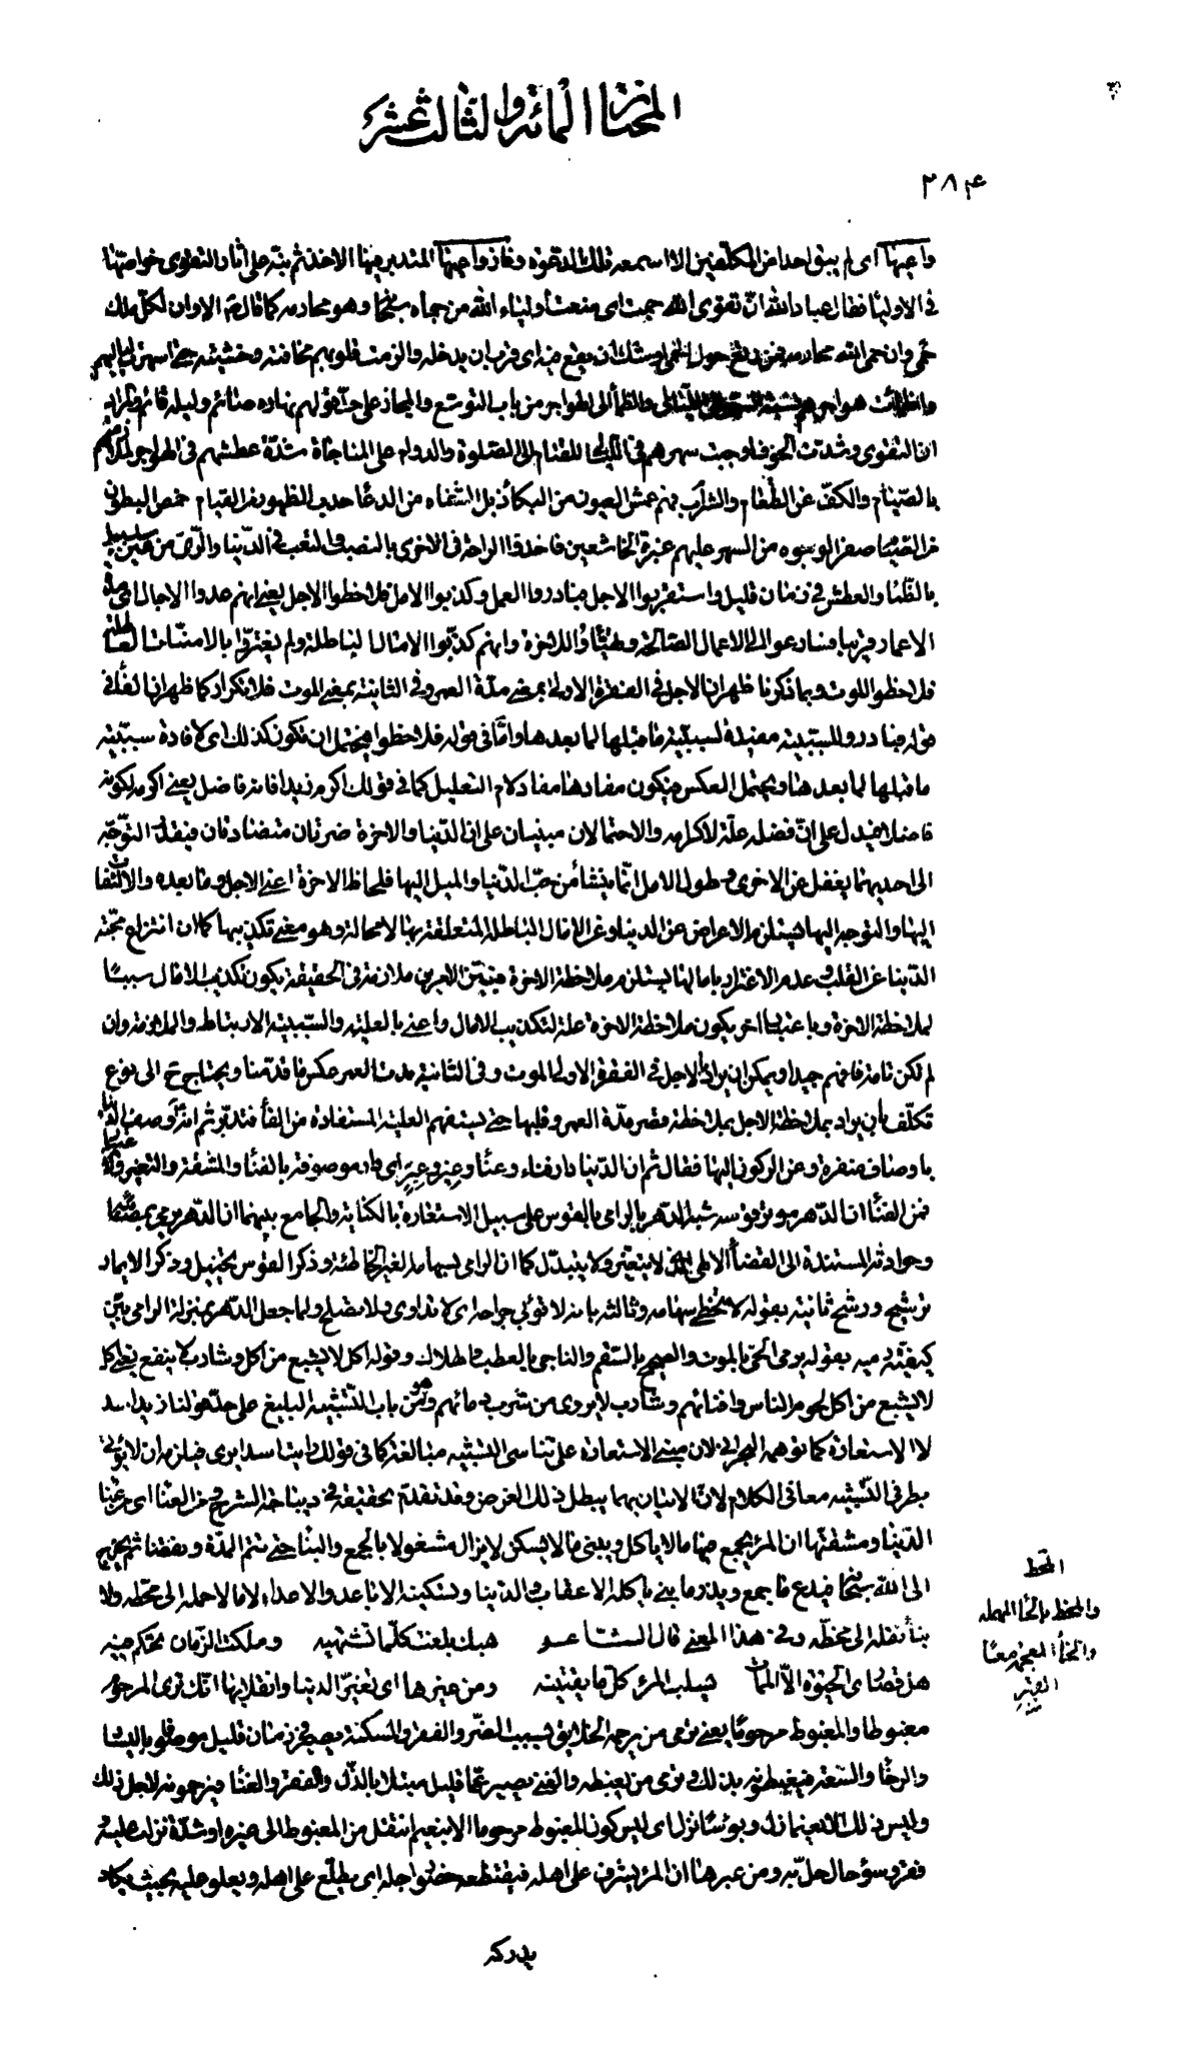 المختار المائة والثالث عشر
۲۸۴
واعيها اى لم يبق احد من المكلّفين الا اسمعه تلك الدّعوة وفاز واعيها المتدبر فيها الآخذ ثم نبّه على آثار التقوى وخواصّها
فى الاولياء فقال عباد الله انّ تقوى الله حمت اى منعت أولياء الله من حماه سبحانه وهو محارمه كما قال ص الا وان لكل ملك
حمى وان حمى الله محارمه فمن رتع حول الحمى اوشك ان يقع فيه اى قرب ان يدخله والزمت قلوبهم مخافته وخشيته حتى اسهرت لياليهم
واظمأت هواجرهم نسبة السهر الى الليالى والظمأ الى الهواجر من باب التوسّع والمجاز على حدّ قولهم نهاره صائم وليله قائم والمراد
ان التقوى وشدّة الخوف اوجبت سهرهم فى الليالى للقيام الى الصّلوة والدوام على المناجاة وشدّة عطشهم فى الهواجر
بالصّيام والكفّ عن الطّعام والشراب فهم عمش العيون من البكاء ذبل الشفاه من الدعا حدب الظهور من القيام خمص البطون
من الصّيام صفر الوجوه من السهر عليهم غبرة الخاشعين فاخذوا الراحة فى الاخرى بالنصب والتعب فى الدّنيا والرّىّ من عين سلسبيل
بالظّماء والعطش فى زمان قليل واستقربوا الاجل فبادروا العمل وكذبوا الامل فلاحظوا الاجل يعنى انهم عدوا الآجال اى مدّة
الاعمار قريبا فسارعوا الى الاعمال الصّالحة وتهيّأوا للاخرة وانهم كذّبوا الآمال الباطلة ولم يغترّوا بالامنيّات العاطلة
فلاحظوا الموت وبما ذكرنا ظهر ان الاجل فى الفقرة الاولى بمعنى مدّة العمر وفى الثانية بمعنى الموت فلا تكرار كما ظهر ان الفاء فى
قوله فبادروا للسببيّة مفيدة لسببيّة ما قبلها لما بعدها واما فى قوله فلاحظوا فيحتمل ان تكون كذلك اى لافادة سببيّة
ما قبلها لما بعدها ويحتمل العكس فيكون مفادها مفاد لام التعليل كما فى قولك اكرم زيدا فانه فاضل يعنى اكرمه لكونه
فاضلا فيدل على انّ فضله علّة لاكرامه والاحتمالان مبنيان على ان الدّنيا والاخرة ضرّتان متضادتان فبقدر التوجّه
الى احديهما يغفل عن الاخرى وطول الامل انّما ينشأ من حبّ الدّنيا والميل اليها فلحاظ الاخرة اعنى الاجل وما بعده والالتفات
اليها والتوجه اليها يستلزم الاعراض عن الدنيا وعن الآمال الباطلة المتعلقة بها لا محالة وهو معنى تكذيبها كما ان انتزاع محبّة
الدّنيا عن القلب وعدم الاغترار بآمالها يستلزم ملاحظة الاخرة فبين الامرين ملازمة فى الحقيقة يكون تكذيب الآمال سببا
لملاحظة الاخرة وباعتبار آخر يكون ملاحظة الاخرة علة لتكذيب الآمال واعنى بالعليّة والسّببيّة الارتباط والملازمة وان
لم تكن تامة فافهم جيدا ويمكن ان يراد بالاجل فى الفقرة الاولى الموت وفى الثانية مدّة العمر عكس ما قدّمنا ويحتاج ح الى نوع
تكلّف بأن يراد بملاحظة الاجل ملاحظة قصر مدّة العمر وقلّتها حتى يستفهم العلية المستفادة من الفاء فتدبّر ثم انه وصف الدنيا
باوصاف منفّرة عن الركون اليها فقال ثم ان الدّنيا دار فناء وعناء وغير وعبر اى دار موصوفة بالفناء والمشقّة والتغير والاعتبار
فمن الفناء ان الدّهر موتر قوسه شبه الدّهر بالرامى بالقوس على سبيل الاستعارة بالكناية والجامع بينهما ان الدّهر يرمى بمصائبه
وحوادثه المستندة الى القضاء الالهى الّذى لا يتغيّر ولا يتبدّل كما ان الرامى يرمى بسهامه الغير الخاطئة وذكر القوس تخييل وذكر الايتار
ترشيح ورشح ثانية بقوله لا تخطى سهامه وثالثة بانه لا توسى جراحه اى لا تداوى ولا تصلح ولما جعل الدّهر بمنزلة الرامى بيّن
كيفيّة رميه بقوله يرمى الحىّ بالموت والصحيح بالسّقم والناجى بالعطب والهلاك وقوله آكل لا يشبع من اكل وشارب لا ينقع يعنى آكل
لا يشبع من اكل لحوم الناس وافنائهم وشارب لا يروى من شرب دمائهم وهو من باب التّشبيه البليغ على حدّ قولنا زيد اسد
لا الاستعارة كما توهمه البحرانى لان مبنى الاستعارة على تناسى التشبيه مبالغة كما فى قولك رايت اسدا يرمى فيلزم ان لا يؤتى
بطرفى التّشبيه معا فى الكلام لانّ الاتيان بهما يبطل ذلك الغرض وقد تقدّم تحقيقه فى ديباجة الشرح ومن العناء اى من عناء
الدّنيا ومشقّتها ان المرء يجمع فيها ما لا ياكل ويبنى ما لا يسكن لا يزال مشغولا بالجمع والبناء حتى تتم المدّة وتنقضى ثم يخرج
الى الله سبحانه فيدع ما جمع ويذر ما بنى ياكله الاعقاب فى الدّنيا وتسكنه الاباعد والاعداء لا مالا حمله الى محطّه ولا
بناء نقله الى محطّه وفى هذا المعنى قال الشاعر هبك بلغت كلّما تشتهيه وملكت الزّمان تحكم فيه
هل قصارى الحيوة الّا الممات يسلب المرء كل ما يقتنيه ومن غيرها اى تغيّر الدنيا وانقلابها انّك ترى المرحوم
مغبوطا والمغبوط مرحوما يعنى ترى من يرحمه الخلايق بسبب الضّر والفقر والمسكنة يصبح فى زمان قليل موصوفا باليسار
والرخاء والسّعة فيغبطونه بذلك وترى من يغبطه والغنى يصير عمّا قليل مبتلا بالذّل والفقر والعناء فيرحمونه لاجل ذلك
وليس ذلك الا نعيما زل وبؤسا نزل اى ليس كون المغبوط مرحوما الا لنعيم انتقل من المغبوط الى غيره او شدّة نزلت عليه و
فقر وسؤ حال حلّ به ومن عبرها ان المرء يشرف على امله فيقتطعه حضور اجله اى يطّلع على امله ويعلو عليه بحيث يكاد
المحط
والمحط بالحاء المهملة
والخاء المعجمة معا
القبر
منه
يدركه